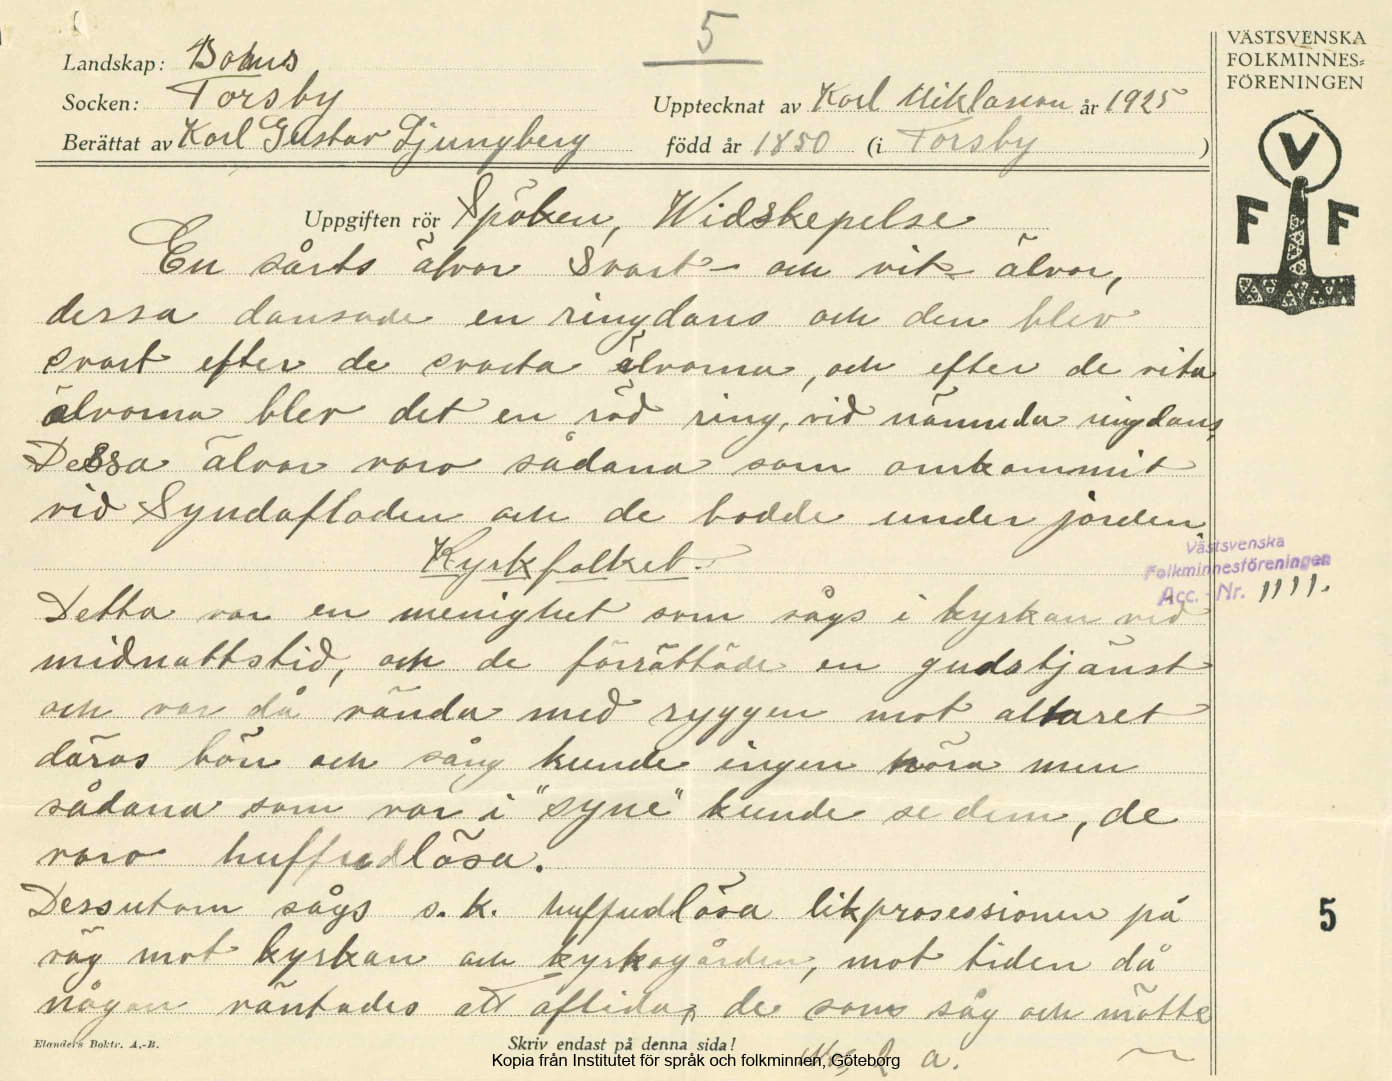 5
VÄSTSVENSKA
FOLKMINNES=
FÖRENINGEN
V
F F
Landskap: Bohus
Socken: Torsby
Upptecknat av Karl Niklasson år 1925
Berättat av Karl Gustav Ljungberg
född år 1850 (i Torsby )
Uppgiften rör Spöken, Widskepelse
En sårts älvor Svart- och vit- älvor,
dessa dansade en ringdans och den blev
svart efter de svarta älvorna, och efter de vita
älvorna blev det en röd ring, vid nämnda ringdans,
Dessa älvor voro sådana som omkommit
vid Syndafloden och de bodde under jorden
Kyrkfolket.
Västsvenska
Folkminnesföreningen
Acc. - Nr. 1111.
Detta var en menighet som sågs i kyrkan vid
midnattstid, och de förrättade en gudstjänst
och var då vända med ryggen mot altaret
däras bön och sång kunde ingen höra men
sådana som var i "syne" kunde se dem, de
voro huffudlösa.
Dessutom sågs s.k. huffudlösa likprosessionen på
väg mot kyrkan och kyrkogården, mot tiden då
5
någon väntades att aflida, de som såg och mötte
Elanders Boktr. A.-B.
Skriv endast på denna sida!
Kopia från Institutet för språk och folkminnen, Göteborg